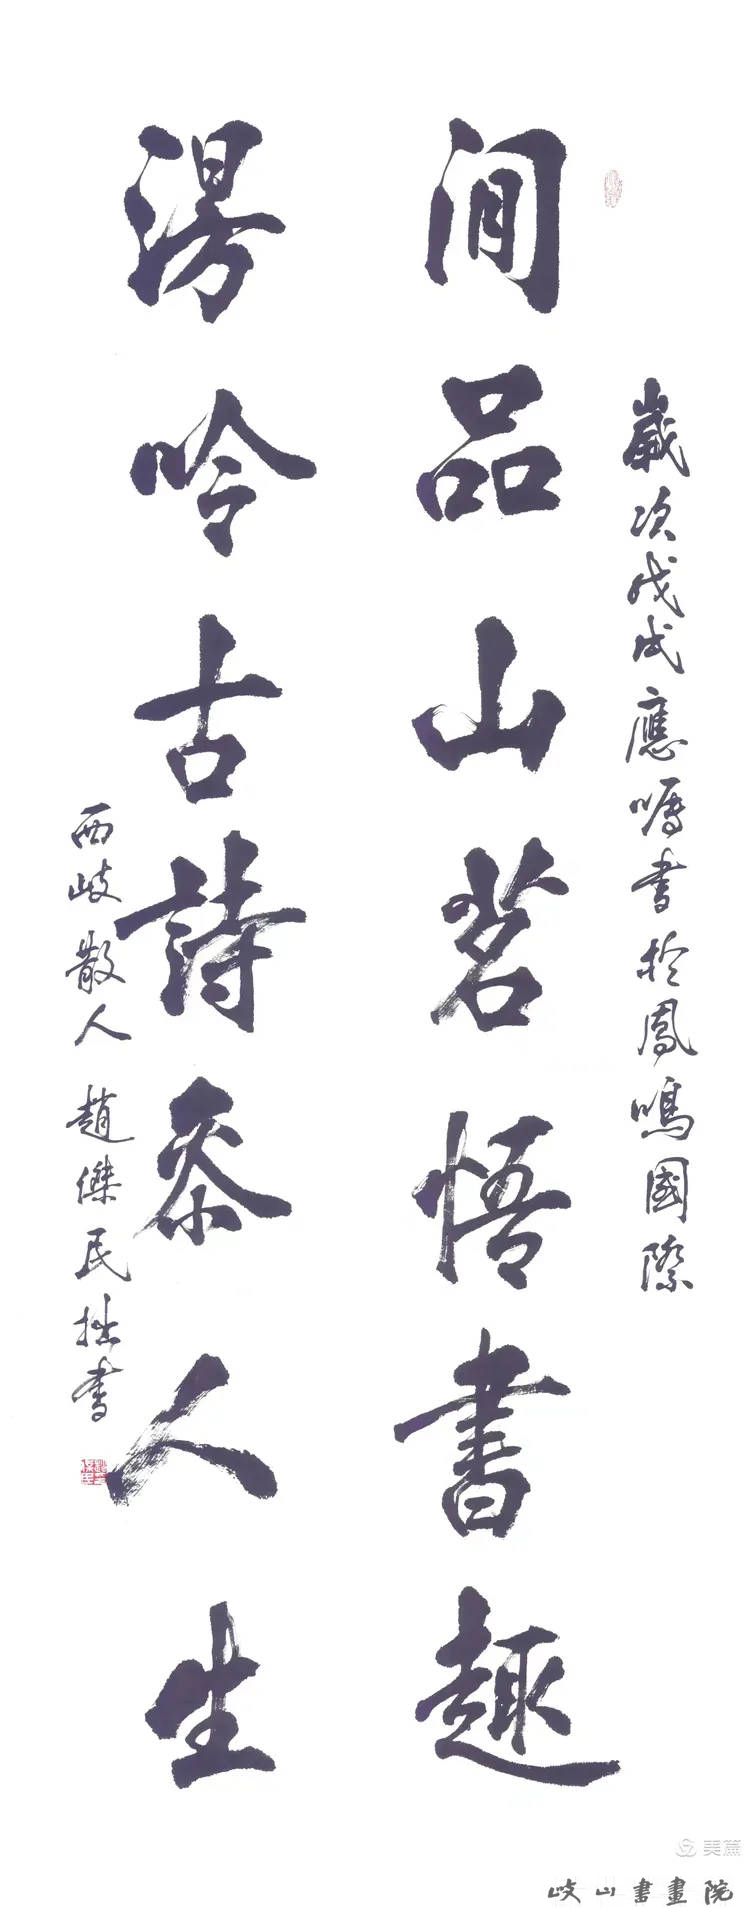 歲次戊戌應囑書於鳳鳴國際
閒品山茗悟書趣
漫吟古詩參人生
西岐散人 趙傑民拙書
美篇
岐山書畫院